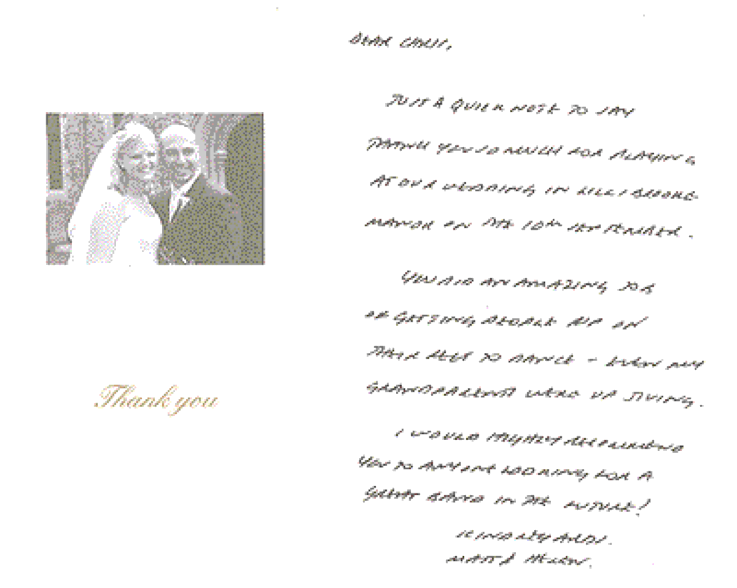 Thank you
DEAR CHRIS,
JUST A QUICK NOTE TO SAY
THANK YOU SO MUCH FOR PLAYING
AT OUR WEDDING IN LILLIBROOKE
MANOR ON THE 10th SEPTEMBER.
YOU DID AN AMAZING JOB
OF GETTING PEOPLE UP ON
THEIR FEET TO DANCE - EVEN MY
GRANDPARENTS WERE UP JIVING.
I WOULD HIGHLY RECOMMEND
YOU TO ANYONE LOOKING FOR A
GREAT BAND IN THE FUTURE!
KIND REGARDS.
MATT & HELEN.